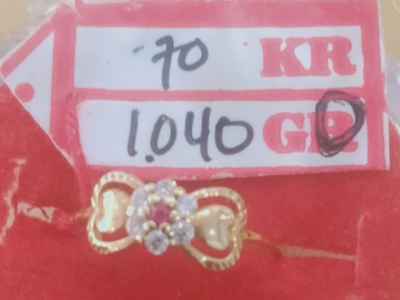 70 KR
1.040 GR